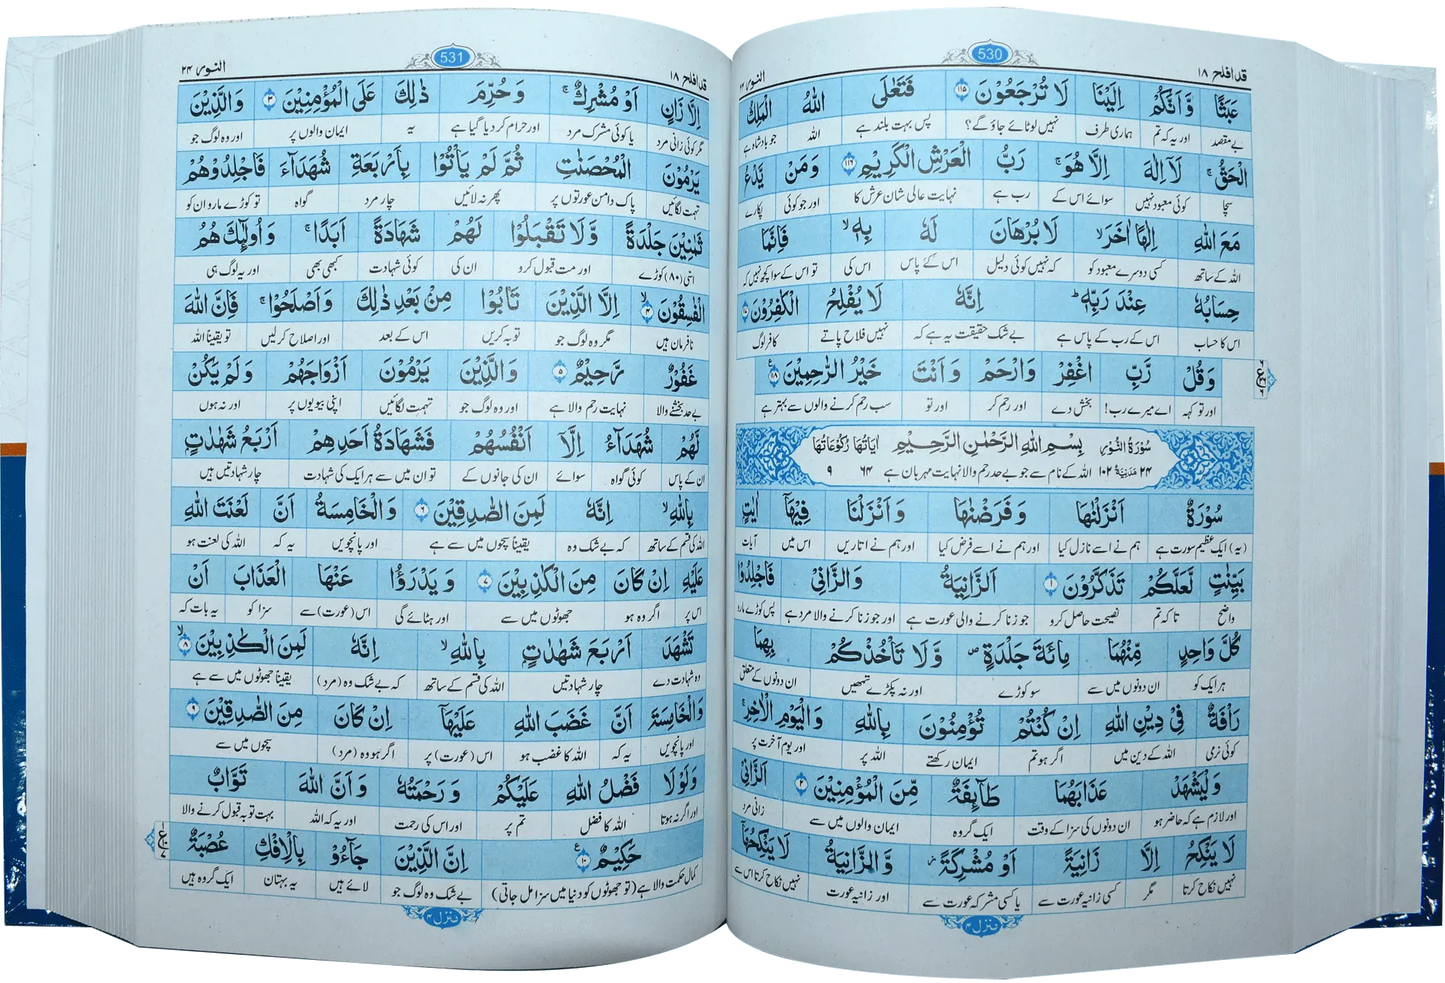 قد افلح ۱۸
530
النور ۲۴
عَبَثًا وَّ اَنَّكُمْ اِلَيْنَا لَا تُرْجَعُوْنَ ۱۱۵ فَتَعٰلَى اللهُ الْمَلِكُ
بے مقصد اور یہ کہ تم ہماری طرف نہیں لوٹائے جاؤ گے؟ پس بہت بلند ہے اللہ جو بادشاہ ہے
الْحَقُّ ۚ لَاۤ اِلٰهَ اِلَّا هُوَ ۚ رَبُّ الْعَرْشِ الْكَرِيْمِ ۱۱۶ وَمَنْ يَّدْعُ
سچا کوئی معبود نہیں سوائے اس کے رب ہے نہایت عالی شان عرش کا اور جو کوئی پکارے
مَعَ اللهِ اِلٰهًا اٰخَرَ ۙ لَا بُرْهَانَ لَهٗ بِهٖ ۙ فَاِنَّمَا
اللہ کے ساتھ کسی دوسرے معبود کو کہ نہیں کوئی دلیل اس کے پاس اس کی تو اس کے سوا کچھ نہیں کہ
حِسَابُهٗ عِنْدَ رَبِّهٖ ؕ اِنَّهٗ لَا يُفْلِحُ الْكٰفِرُوْنَ
اس کا حساب اس کے رب کے پاس ہے بے شک حقیقت یہ ہے کہ نہیں فلاح پاتے کافر لوگ
وَقُلْ رَّبِّ اغْفِرْ وَارْحَمْ وَ اَنْتَ خَيْرُ الرّٰحِمِيْنَ ۱۱۸
اور تو کہہ اے میرے رب! بخش دے اور رحم کر اور تو سب رحم کرنے والوں سے بہتر ہے
سُوْرَةُ النُّوْرِ بِسْمِ اللهِ الرَّحْمٰنِ الرَّحِيْمِ اٰيَاتُهَا رُكُوْعَاتُهَا
۲۴ مَدَنِيَّةٌ ۱۰۲ اللہ کے نام سے جو بے حد رحم والا نہایت مہربان ہے ۶۴ ۹
سُوْرَةٌ اَنْزَلْنٰهَا وَ فَرَضْنٰهَا وَ اَنْزَلْنَا فِيْهَاۤ اٰيٰتٍ
(یہ) ایک عظیم سورت ہے ہم نے اسے نازل کیا اور ہم نے اسے فرض کیا اور ہم نے اتاریں اس میں آیات
بَيِّنٰتٍ لَّعَلَّكُمْ تَذَكَّرُوْنَ ۱ اَلزَّانِيَةُ وَالزَّانِيْ فَاجْلِدُوْا
واضح تاکہ تم نصیحت حاصل کرو جو زنا کرنے والی عورت ہے اور جو زنا کرنے والا مرد ہے پس کوڑے مارو
كُلَّ وَاحِدٍ مِّنْهُمَا مِائَةَ جَلْدَةٍ ۪ وَّ لَا تَاْخُذْكُمْ بِهِمَا
ہر ایک کو ان دونوں میں سے سو کوڑے اور نہ پکڑے تمھیں ان دونوں کے متعلق
رَاْفَةٌ فِيْ دِيْنِ اللهِ اِنْ كُنْتُمْ تُؤْمِنُوْنَ بِاللهِ وَالْيَوْمِ الْاٰخِرِ ۚ
کوئی نرمی اللہ کے دین میں اگر ہو تم ایمان رکھتے اللہ پر اور یوم آخرت پر
وَلْيَشْهَدْ عَذَابَهُمَا طَآئِفَةٌ مِّنَ الْمُؤْمِنِيْنَ ۲ اَلزَّانِيْ
اور لازم ہے کہ حاضر ہو ان دونوں کی سزا کے وقت ایک گروہ ایمان والوں میں سے زانی مرد
لَا يَنْكِحُ اِلَّا زَانِيَةً اَوْ مُشْرِكَةً ؗ وَّ الزَّانِيَةُ لَا يَنْكِحُهَاۤ
نہیں نکاح کرتا مگر کسی زانیہ عورت سے یا کسی مشرکہ عورت سے اور زانیہ عورت نہیں نکاح کرتا اس سے
منزل ۴
قد افلح ۱۸
531
النور ۲۴
اِلَّا زَانٍ اَوْ مُشْرِكٌ ۚ وَ حُرِّمَ ذٰلِكَ عَلَى الْمُؤْمِنِيْنَ ۳ وَ الَّذِيْنَ
مگر کوئی زانی مرد یا کوئی مشرک مرد اور حرام کر دیا گیا ہے یہ ایمان والوں پر اور وہ لوگ جو
يَرْمُوْنَ الْمُحْصَنٰتِ ثُمَّ لَمْ يَاْتُوْا بِاَرْبَعَةِ شُهَدَآءَ فَاجْلِدُوْهُمْ
تہمت لگائیں پاک دامن عورتوں پر پھر نہ لائیں چار مرد گواہ تو کوڑے مارو ان کو
ثَمٰنِيْنَ جَلْدَةً وَّ لَا تَقْبَلُوْا لَهُمْ شَهَادَةً اَبَدًا ۚ وَ اُولٰٓئِكَ هُمُ
اسّی (۸۰) کوڑے اور مت قبول کرو ان کی کوئی شہادت کبھی بھی اور یہ لوگ ہی
الْفٰسِقُوْنَ ۴ اِلَّا الَّذِيْنَ تَابُوْا مِنْ بَعْدِ ذٰلِكَ وَ اَصْلَحُوْا ۚ فَاِنَّ اللهَ
نافرمان ہیں مگر وہ لوگ جو توبہ کریں اس کے بعد اور اصلاح کر لیں تو یقیناً اللہ
غَفُوْرٌ رَّحِيْمٌ ۵ وَ الَّذِيْنَ يَرْمُوْنَ اَزْوَاجَهُمْ وَ لَمْ يَكُنْ
بے حد بخشنے والا نہایت رحم والا ہے اور وہ لوگ جو تہمت لگائیں اپنی بیویوں پر اور نہ ہوں
لَّهُمْ شُهَدَآءُ اِلَّاۤ اَنْفُسُهُمْ فَشَهَادَةُ اَحَدِهِمْ اَرْبَعُ شَهٰدٰتٍ
ان کے پاس کوئی گواہ سوائے ان کی جانوں کے تو ان میں سے ہر ایک کی شہادت چار شہادتیں ہیں
بِاللهِ ۙ اِنَّهٗ لَمِنَ الصّٰدِقِيْنَ ۶ وَ الْخَامِسَةُ اَنَّ لَعْنَتَ اللهِ
اللہ کی قسم کے ساتھ کہ بے شک وہ یقیناً سچوں میں سے ہے اور پانچویں یہ کہ اللہ کی لعنت ہو
عَلَيْهِ اِنْ كَانَ مِنَ الْكٰذِبِيْنَ ۷ وَ يَدْرَؤُا عَنْهَا الْعَذَابَ اَنْ
اس پر اگر وہ ہو جھوٹوں میں سے اور ہٹائے گی اس (عورت) سے سزا کو یہ بات کہ
تَشْهَدَ اَرْبَعَ شَهٰدٰتٍۭ بِاللهِ ۙ اِنَّهٗ لَمِنَ الْكٰذِبِيْنَ ۸
وہ شہادت دے چار شہادتیں اللہ کی قسم کے ساتھ کہ بے شک وہ (مرد) یقیناً جھوٹوں میں سے ہے
وَ الْخَامِسَةَ اَنَّ غَضَبَ اللهِ عَلَيْهَاۤ اِنْ كَانَ مِنَ الصّٰدِقِيْنَ ۹
اور پانچویں یہ کہ اللہ کا غضب ہو اس (عورت) پر اگر ہو وہ (مرد) سچوں میں سے
وَ لَوْ لَا فَضْلُ اللهِ عَلَيْكُمْ وَ رَحْمَتُهٗ وَ اَنَّ اللهَ تَوَّابٌ
اور اگر نہ ہوتا اللہ کا فضل تم پر اور اس کی رحمت اور یہ کہ اللہ بہت توبہ قبول کرنے والا
حَكِيْمٌ ۱۰ اِنَّ الَّذِيْنَ جَآءُوْ بِالْاِفْكِ عُصْبَةٌ
کمال حکمت والا ہے (تو جھوٹوں کو دنیا میں سزا مل جاتی) بے شک وہ لوگ جو لائے ہیں یہ بہتان ایک گروہ ہیں
منزل ۴